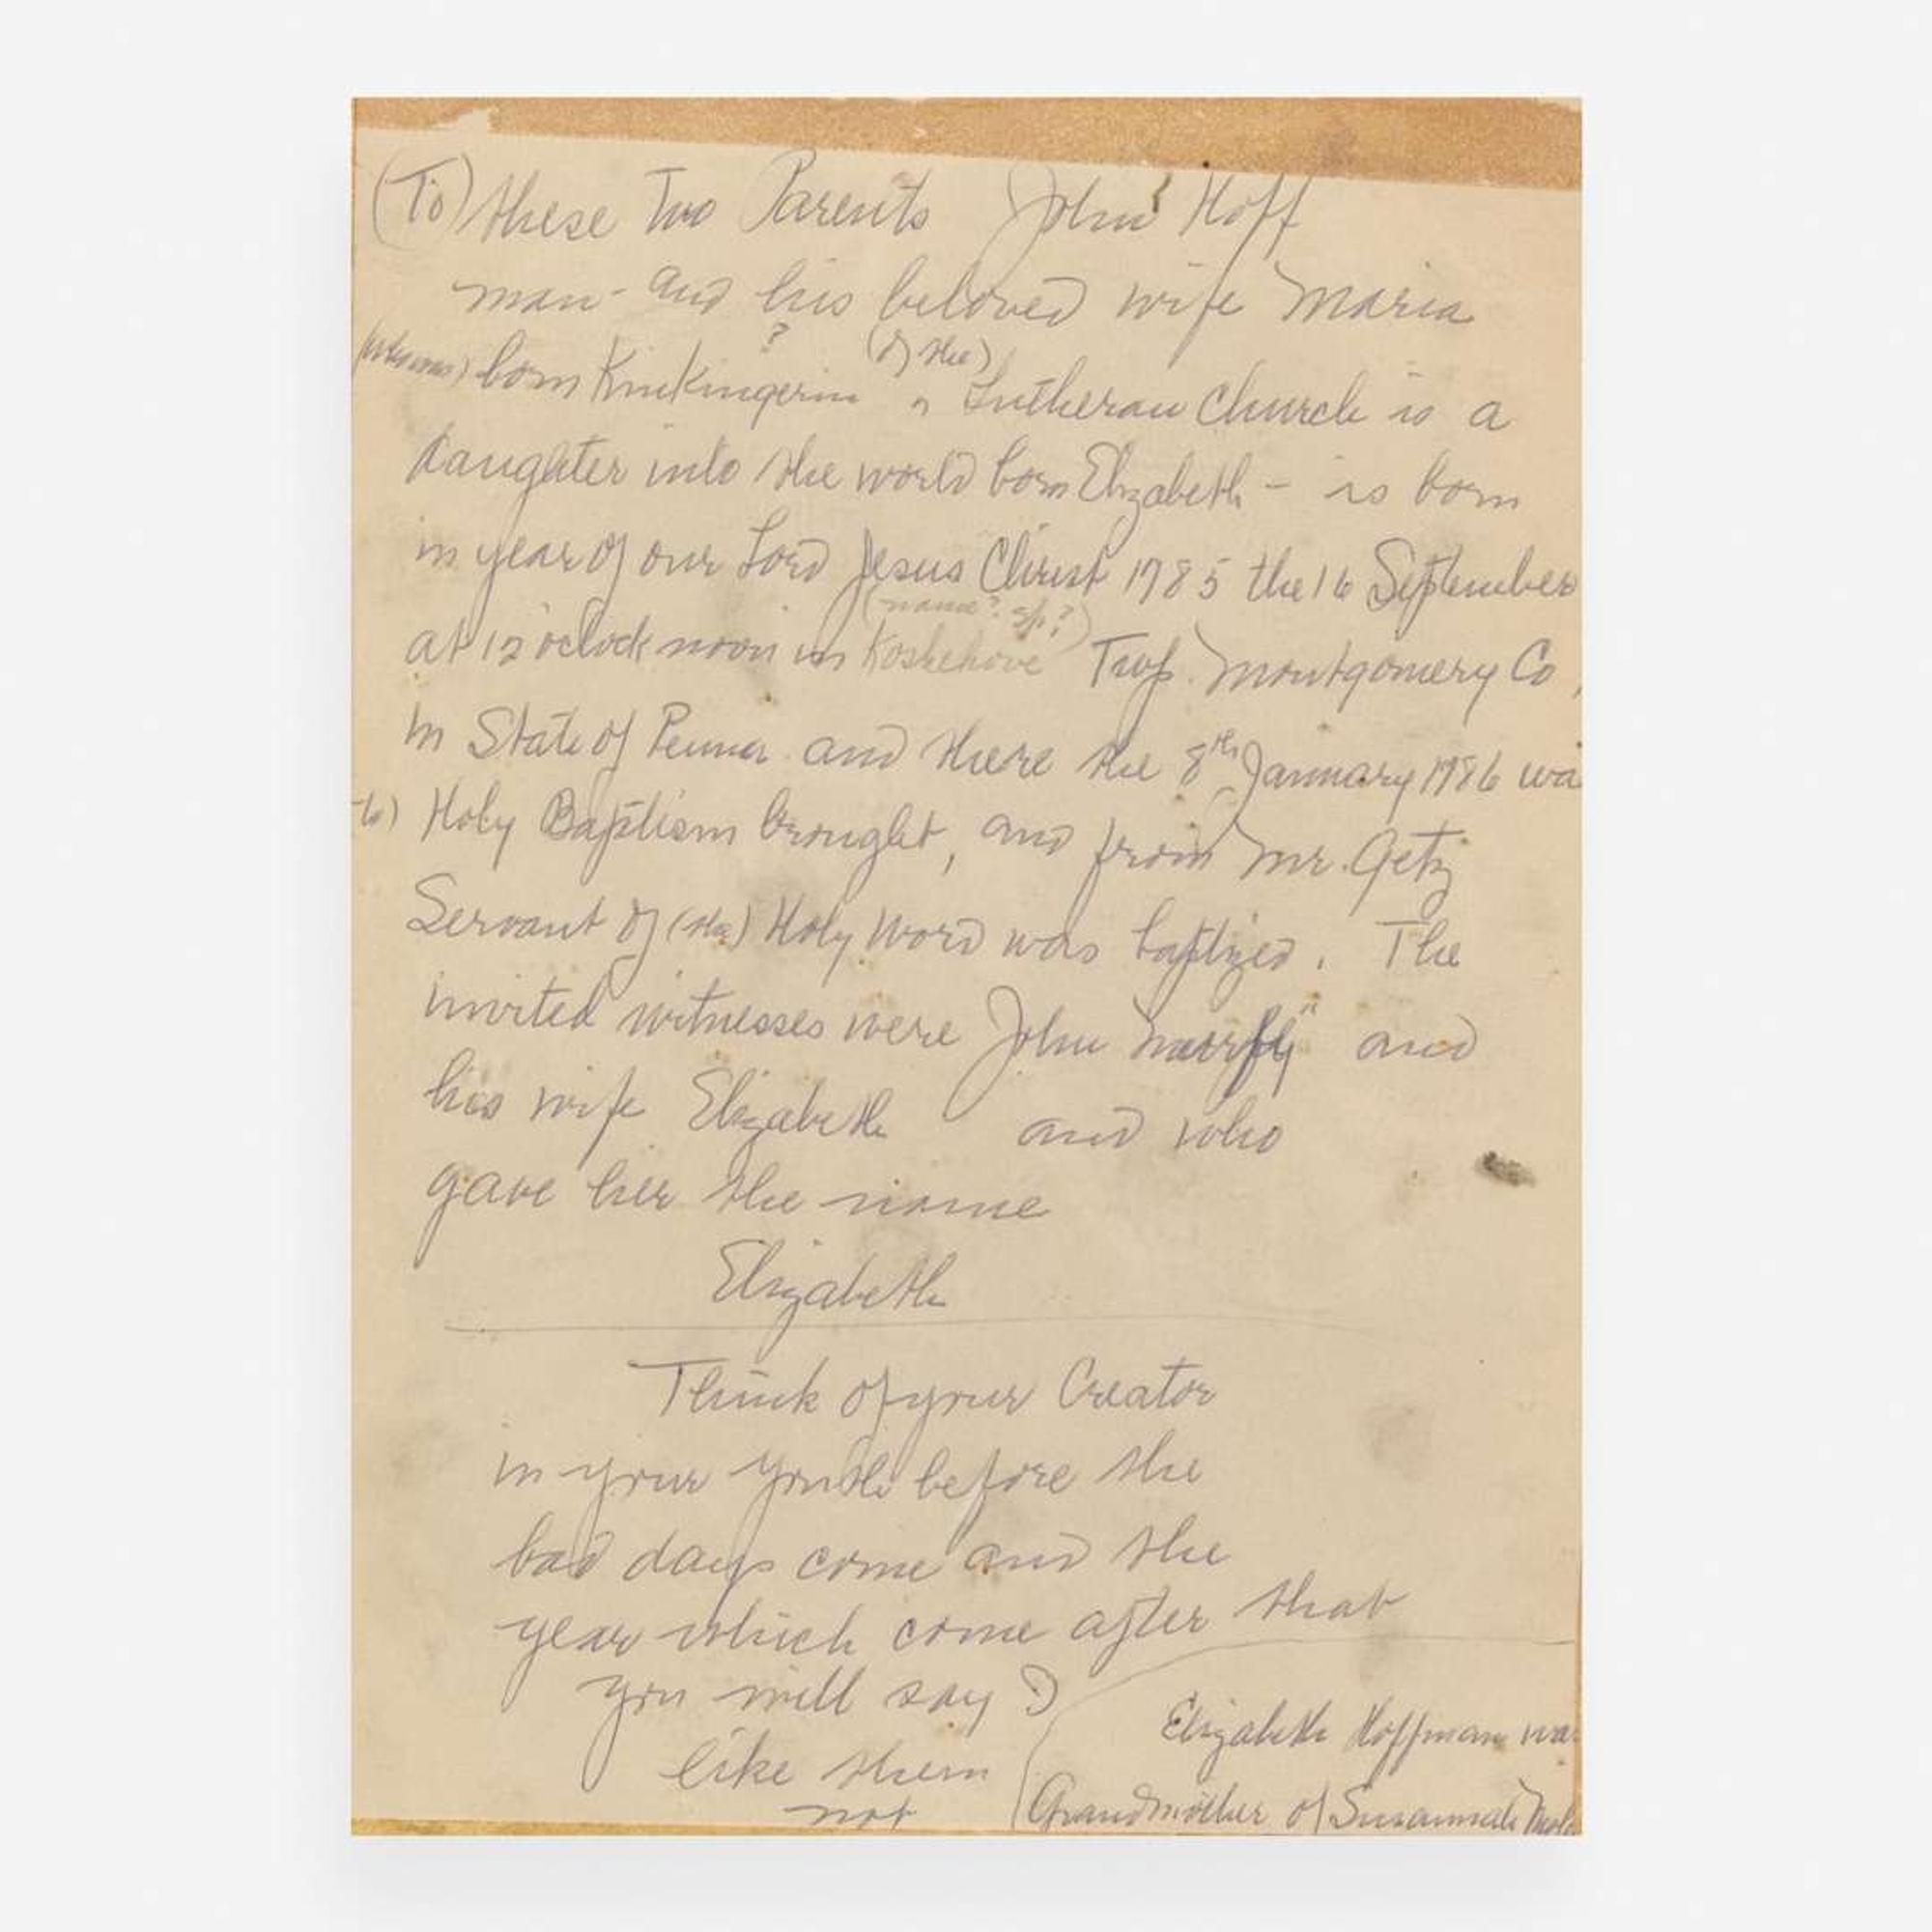 (To) these Two Parents John Hoff
man - and his beloved wife Maria
? (of the)
(who was) born Kinkingerin " Lutheran Church is a
daughter into the world born Elizabeth - is born
in year of our Lord Jesus Christ 1785 the 16 September
(name? sp?)
at 12 oclock noon in Koshehove Twp. Montgomery Co,
in State of Penna. and there the 8th January 1786 wa
to) Holy Baptism brought, and from Mr. Getz
Servant of (the) Holy Word was baptized. The
invited witnesses were John and
his wife Elizabeth and who
gave her the name
Elizabeth
Think of your Creator
in your youth before the
bad days come and the
year which come after that
you will say I
like them
not
Elizabeth Hoffman wa
Grandmother of Susannah